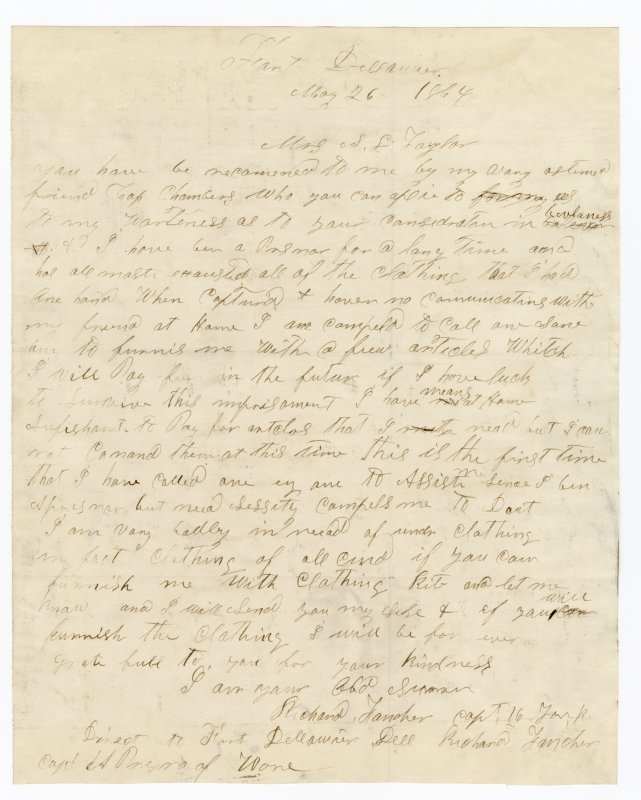 Fort Dellawier
May 26 1864
Mrs S. L Taylor
you have be recomened to me by my vary asteemed
friend Cap Chambers Who you can refer to as
to my Wortheness as to your consideration in
& I have ben a Prisnor for a long time and
has all most exausted all of the clothing that I had
One hand When captured & haven no comunicating with
my friend at Home I am compeld to call on some
one to furnis me With a few articles Whitch
I Will Pay for in the future if I have luck
to survive this imprisament I have means at Home
Sufishant to Pay for articlos that I nead but I can
not comand them at this time this is the first time
that I have called one eny one to Assist me Since I ben
A prisnor but nessessity compels me to Do it
I am vary badley in nead of undr clothing
in fact clothing of all cind if you can
furnish me With clothing rite and let me
know and I Will Send you my Sise & if you will
furnish the clothing I will be for ever
grate full to you for your kindness
I am your Obd
Richard Fancher capt 16
Direct to Fort Dellawier Dell Richard Fancher
capt Prisnr of Wore